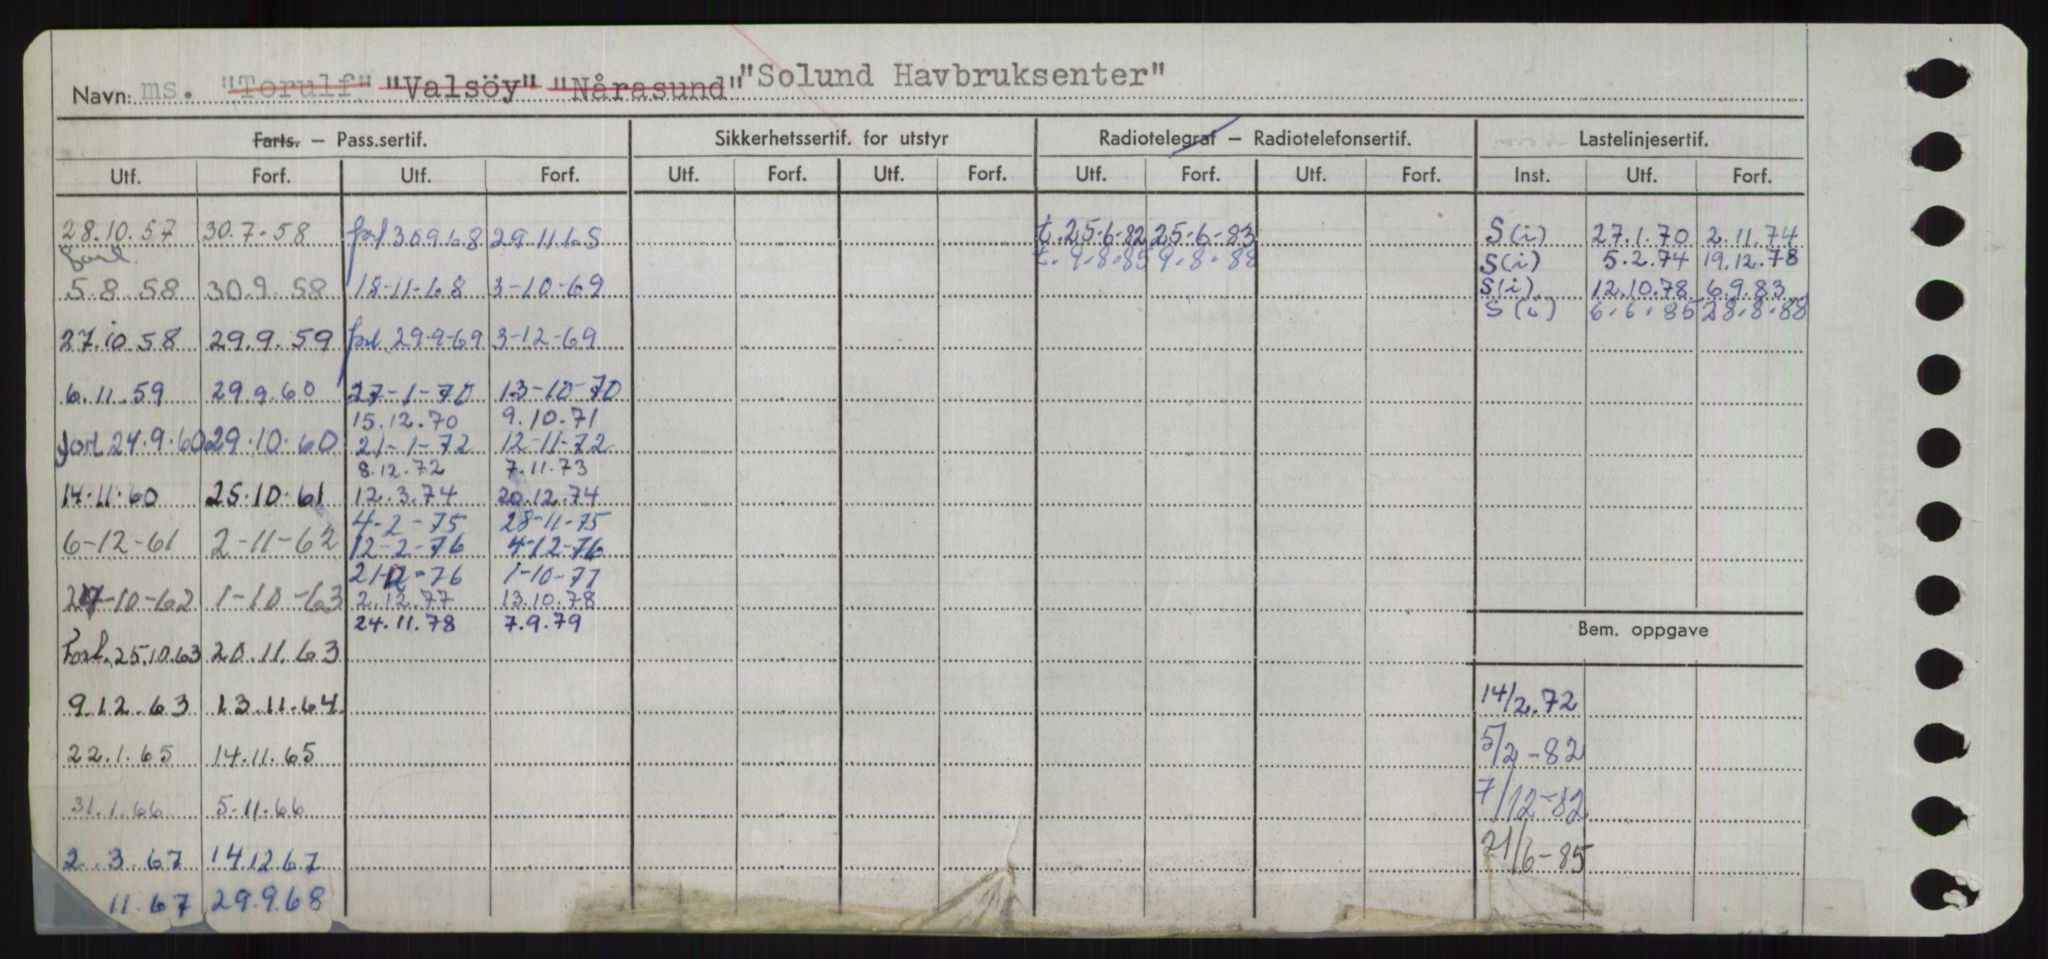 Navn: ms. "Torulf" "Valsöy" "Nårasund" "Solund Havbruksenter"
Farts. — Pass.sertif. Sikkerhetssertif. for utstyr Radiotelegraf — Radiotelefonsertif. Lastelinjesertif.
Utf. Forf. Utf. Forf. Utf. Forf. Utf. Forf. Utf. Forf. Utf. Forf. Inst. Utf. Forf.
28.10.57 30.7.58 forl 30.9.68 29.11.68 t. 25-6-82 25-6-83 S(i) 27.1.70 2.11.74
forl. t. 9.8.85 9.8.88 S(i) 5.2.74 19.12.78
5.8.58 30.9.58 18-11-68 3-10-69 S(i) 12.10.78 6.9.83
S(i) 6.6.85 28.8.88
27.10.58 29.9.59 forl 29-9-69 3-12-69
6.11.59 29.9.60 27-1-70 13-10-70
15.12.70 9.10.71
forl 24.9.60 29.10.60 21-1-72 12-11-72
8.12.72 7.11.73
14.11.60 25.10.61 12.3.74 20.12.74
4-2-75 28-11-75
6-12-61 2-11-62 12-2-76 4-12-76
21-12-76 1-10-77
-10-62 1-10-63 2.12.77 13.10.78
24.11.78 7.9.79
Bem. oppgave
Forl. 25.10.63 20.11.63
9.12.63 13.11.64 14/2.72
22.1.65 14.11.65 5/2-82
31.1.66 5.11.66 7/12-82
2.3.67 14.12.67 21/6-85
11.67 29.9.68